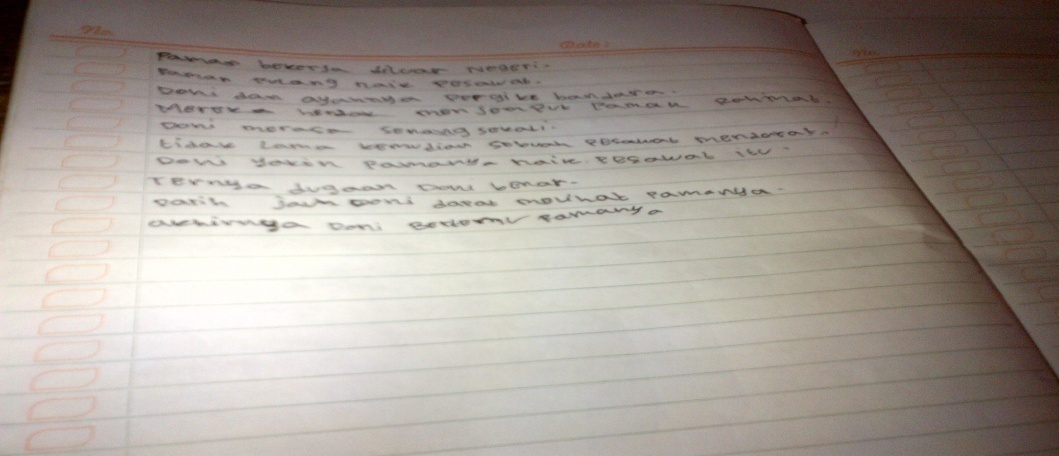 No. Date:
Paman bekerja diluar Negeri.
Paman pulang naik Pesawat.
Doni dan ayahnya Pergi ke bandara.
Mereka hendak menjemput Paman Rohmat.
Doni merasa senang sekali.
tidak Lama kemudian sebuah Pesawat mendarat.
Doni yakin Pamanya naik Pesawat itu.
TErnya dugaan Doni benar.
Darih jauh Doni dapat melihat Pamanya.
akhirnya Doni Bertemu Pamanya
No.